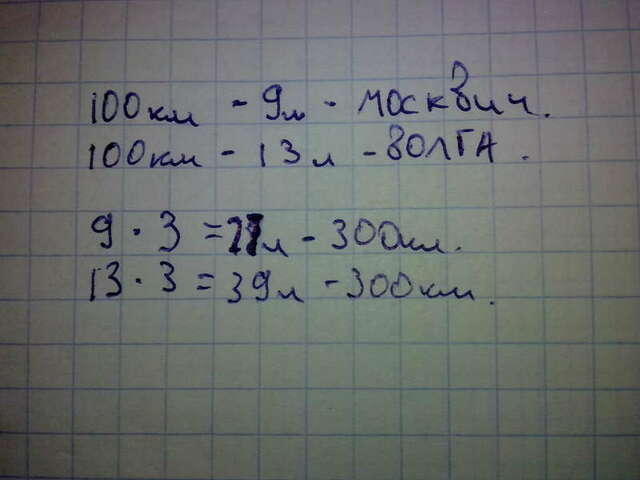 100км - 9л - москвич.
100км - 13л - ВОЛГА.
9 · 3 = 27л - 300км.
13 · 3 = 39л - 300км.